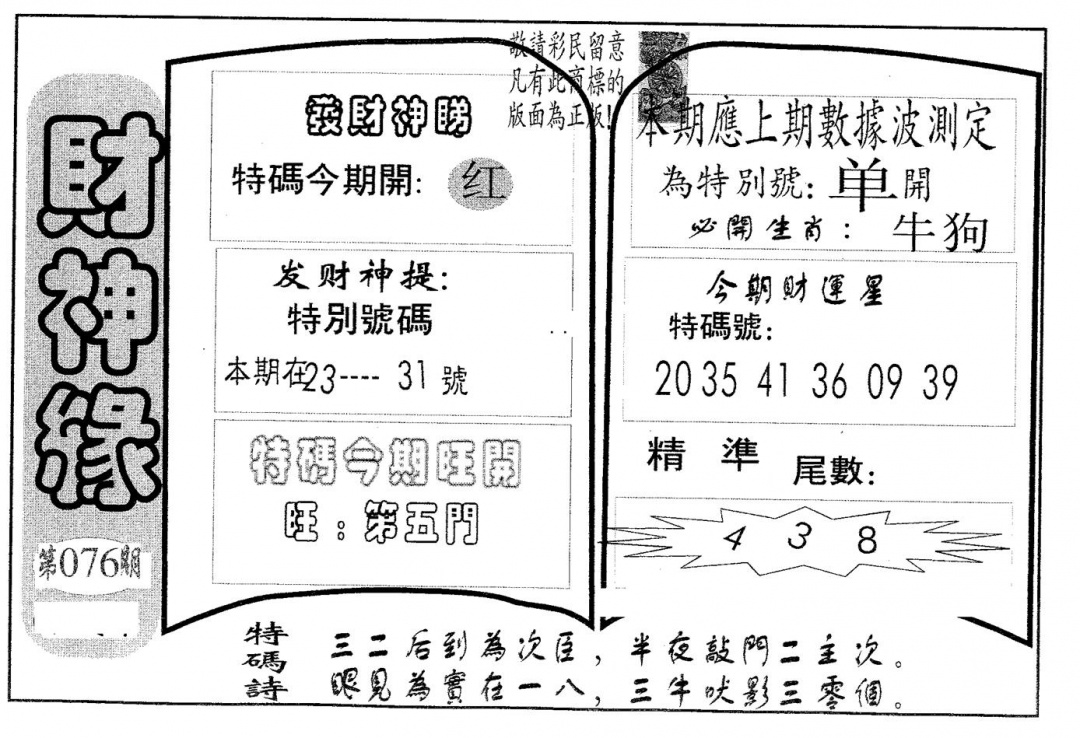 財神緣
第076期
敬請彩民留意
凡有此商標的
版面為正版!
發財神睇
特碼今期開: 红
发财神提:
特別號碼
本期在23---- 31號
特碼今期旺開
旺:第五門
本期應上期數據波測定
為特別號: 单開
必開生肖: 牛狗
今期財運星
特碼號:
20 35 41 36 09 39
精準 尾數:
4 3 8
特碼詩
三二后到為次臣,半夜敲門二主次。
眼見為實在一八,三牛吠影三零個。